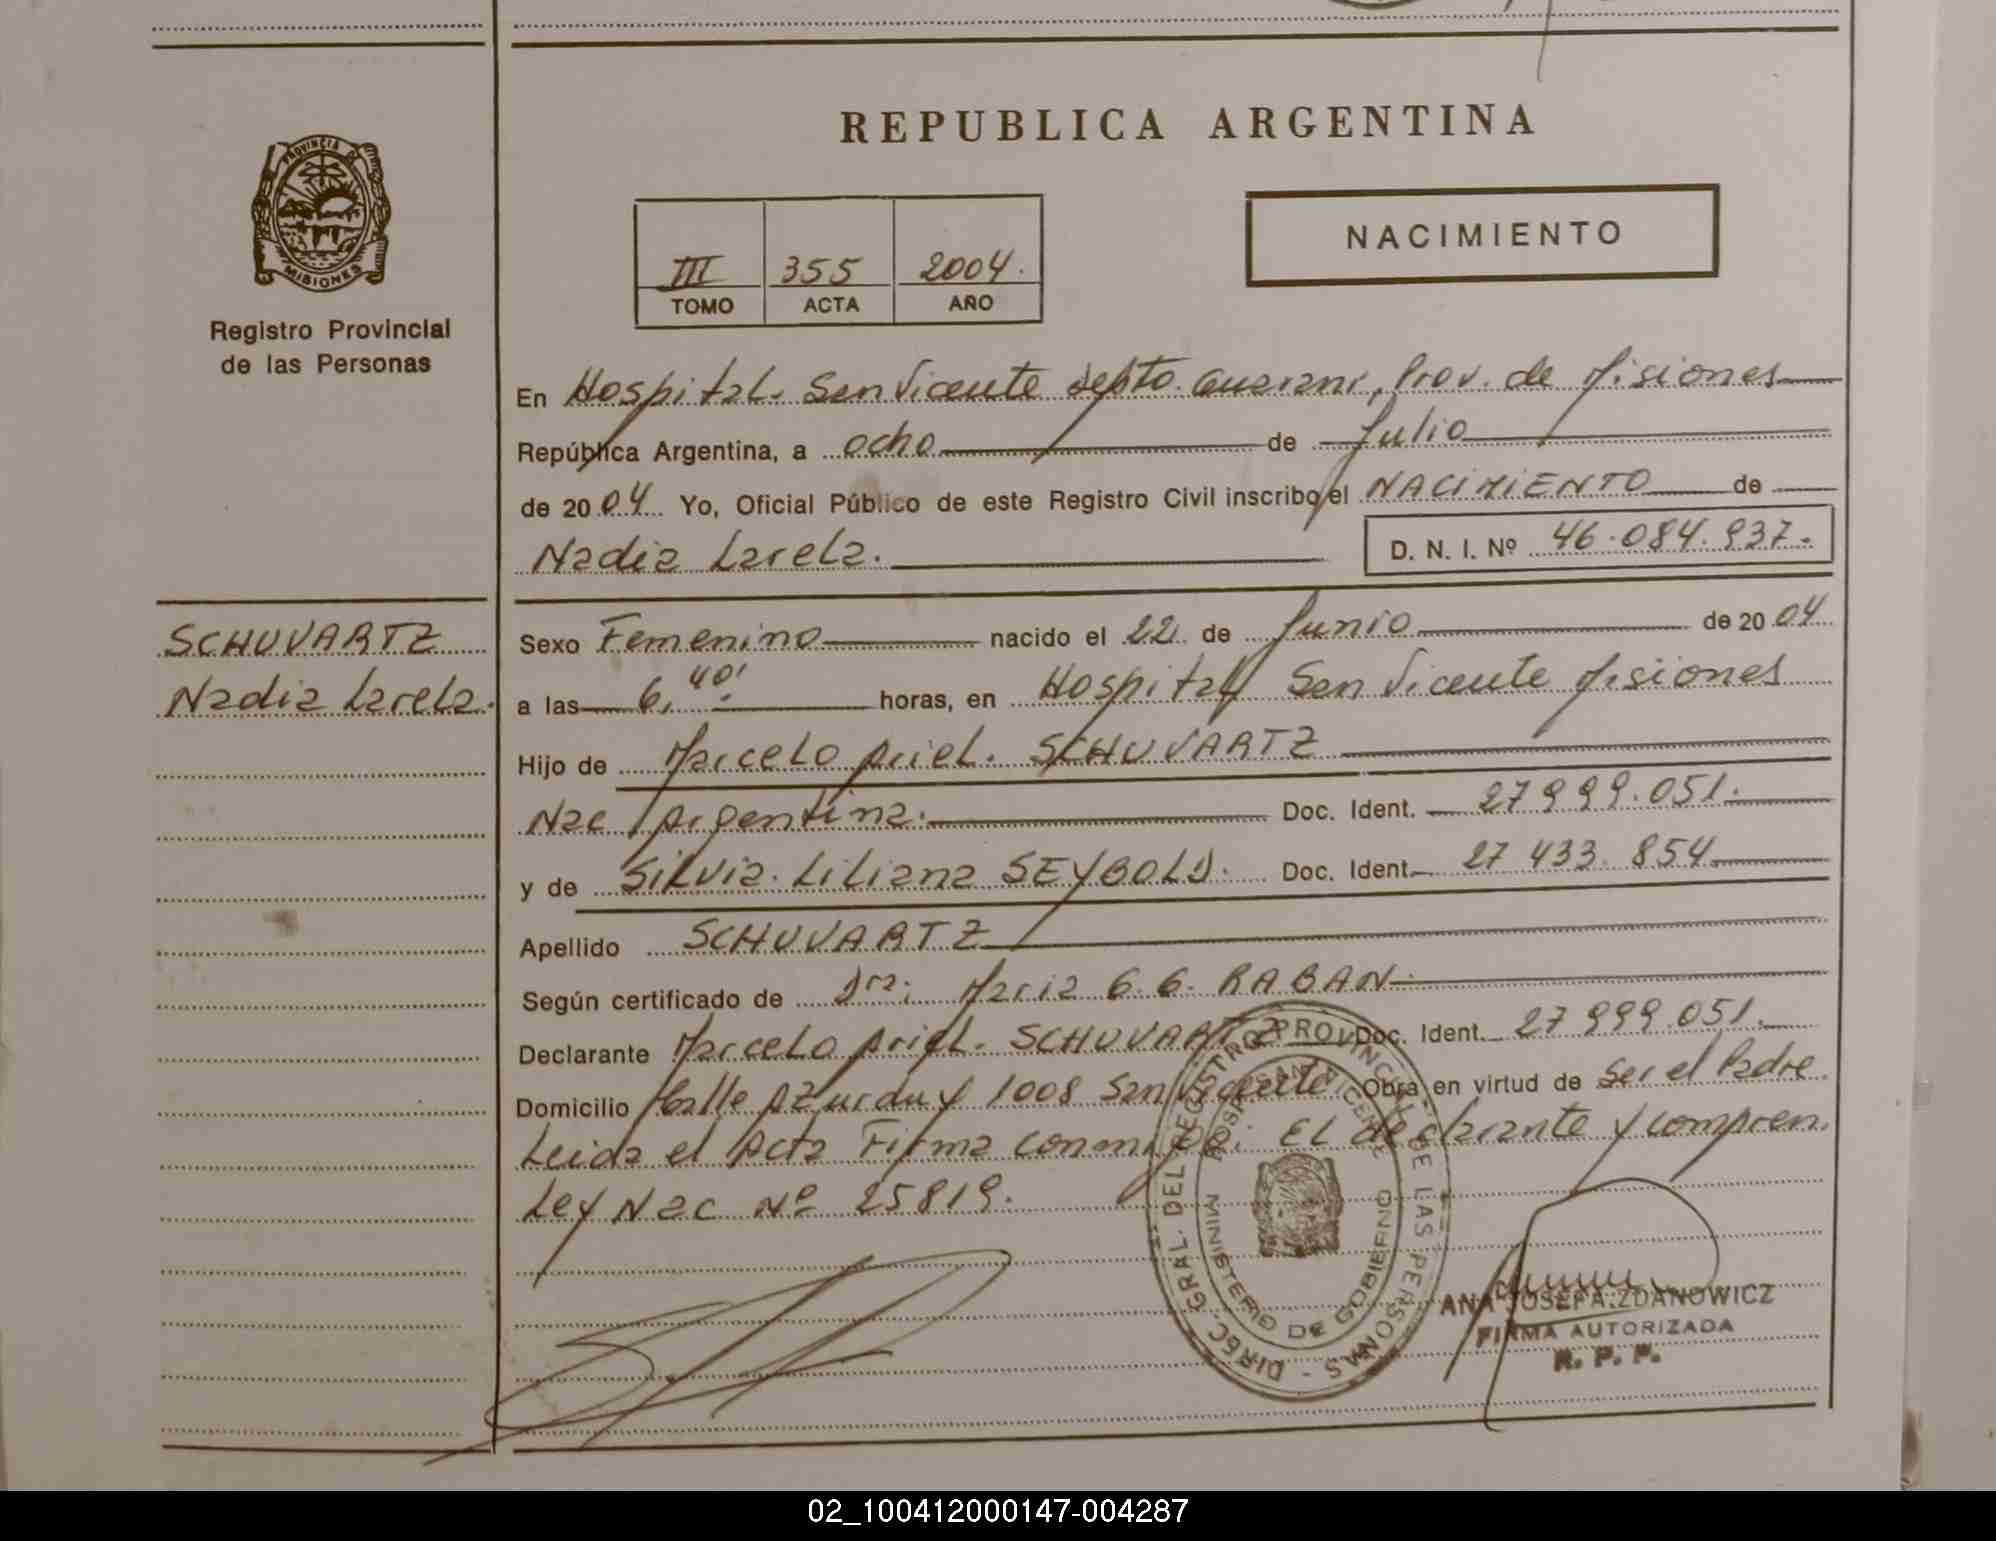 REPUBLICA ARGENTINA
PROVINCIA DE
MISIONES
Registro Provincial
de las Personas
III 355 2004.
TOMO ACTA AÑO
NACIMIENTO
En Hospital. San Vicente Depto. Guarani, Prov. de Misiones
República Argentina, a ocho de Julio
de 2004 Yo, Oficial Público de este Registro Civil inscribo el NACIMIENTO de
Nadia Larela.
D. N. I. Nº 46.084.937.
SCHUVARTZ
Nadia Larela.
Sexo Femenino nacido el 22 de Junio de 2004
a las 6,40' horas, en Hospital San Vicente Misiones
Hijo de Marcelo Ariel. SCHUVARTZ
Nac Argentina. Doc. Ident. 27 999.051.
y de Silvia. Liliana SEYBOLD. Doc. Ident. 27 433. 854
Apellido SCHUVARTZ
Según certificado de Dra. Maria G. G. RABAN
Declarante Marcelo Ariel. SCHUVARTZ Doc. Ident. 27 999.051.
Domicilio Calle Azurduy 1008 San Vicente Obra en virtud de Ser el Padre
Leida el Acta Firma conmigo: EL declarante y compren.
Ley Nac Nº 25819.
DIREC. GRAL. DEL REGISTRO PROVINCIAL DE LAS PERSONAS -
HOSP. SAN VICENTE
MINISTERIO DE GOBIERNO
ANA JOSEFA ZDANOWICZ
FIRMA AUTORIZADA
R. P. P.
02_100412000147-004287